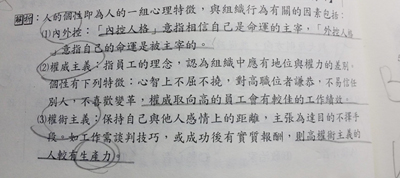 解析：人的個性即為人的一組心理特徵，與組織行為有關的因素包括：
(1)內外控：「內控人格」意指相信自己是命運的主宰，「外控人格
」意指自己的命運是被主宰的。
(2)權威主義：指員工的理念，認為組織中應有地位與權力的差別，
個性有下列特徵：心智上不屈不撓，對高職位者謙恭，不易信任
別人，不喜歡變革，權威取向高的員工會有較佳的工作績效。
(3)權術主義：保持自己與他人感情上的距離，主張為達目的不擇手
段。如工作需談判技巧，或成功後有實質報酬，則高權術主義的
人較有生產力。